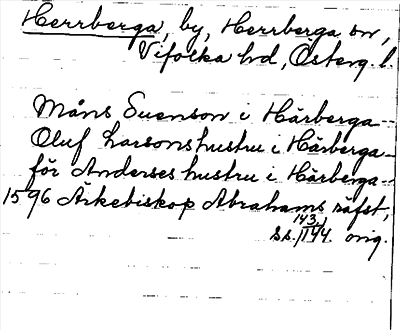 Herrberga, by, Herrberga sn,
Vifolka hd, Österg. l.
Måns Suenson i Härberga--
Oluf Larsons hustru i Härberga--
för Anderses hustru i Härberga--
1596 Ärkebiskop Abrahams räfst,
ss. 143, 144. orig.